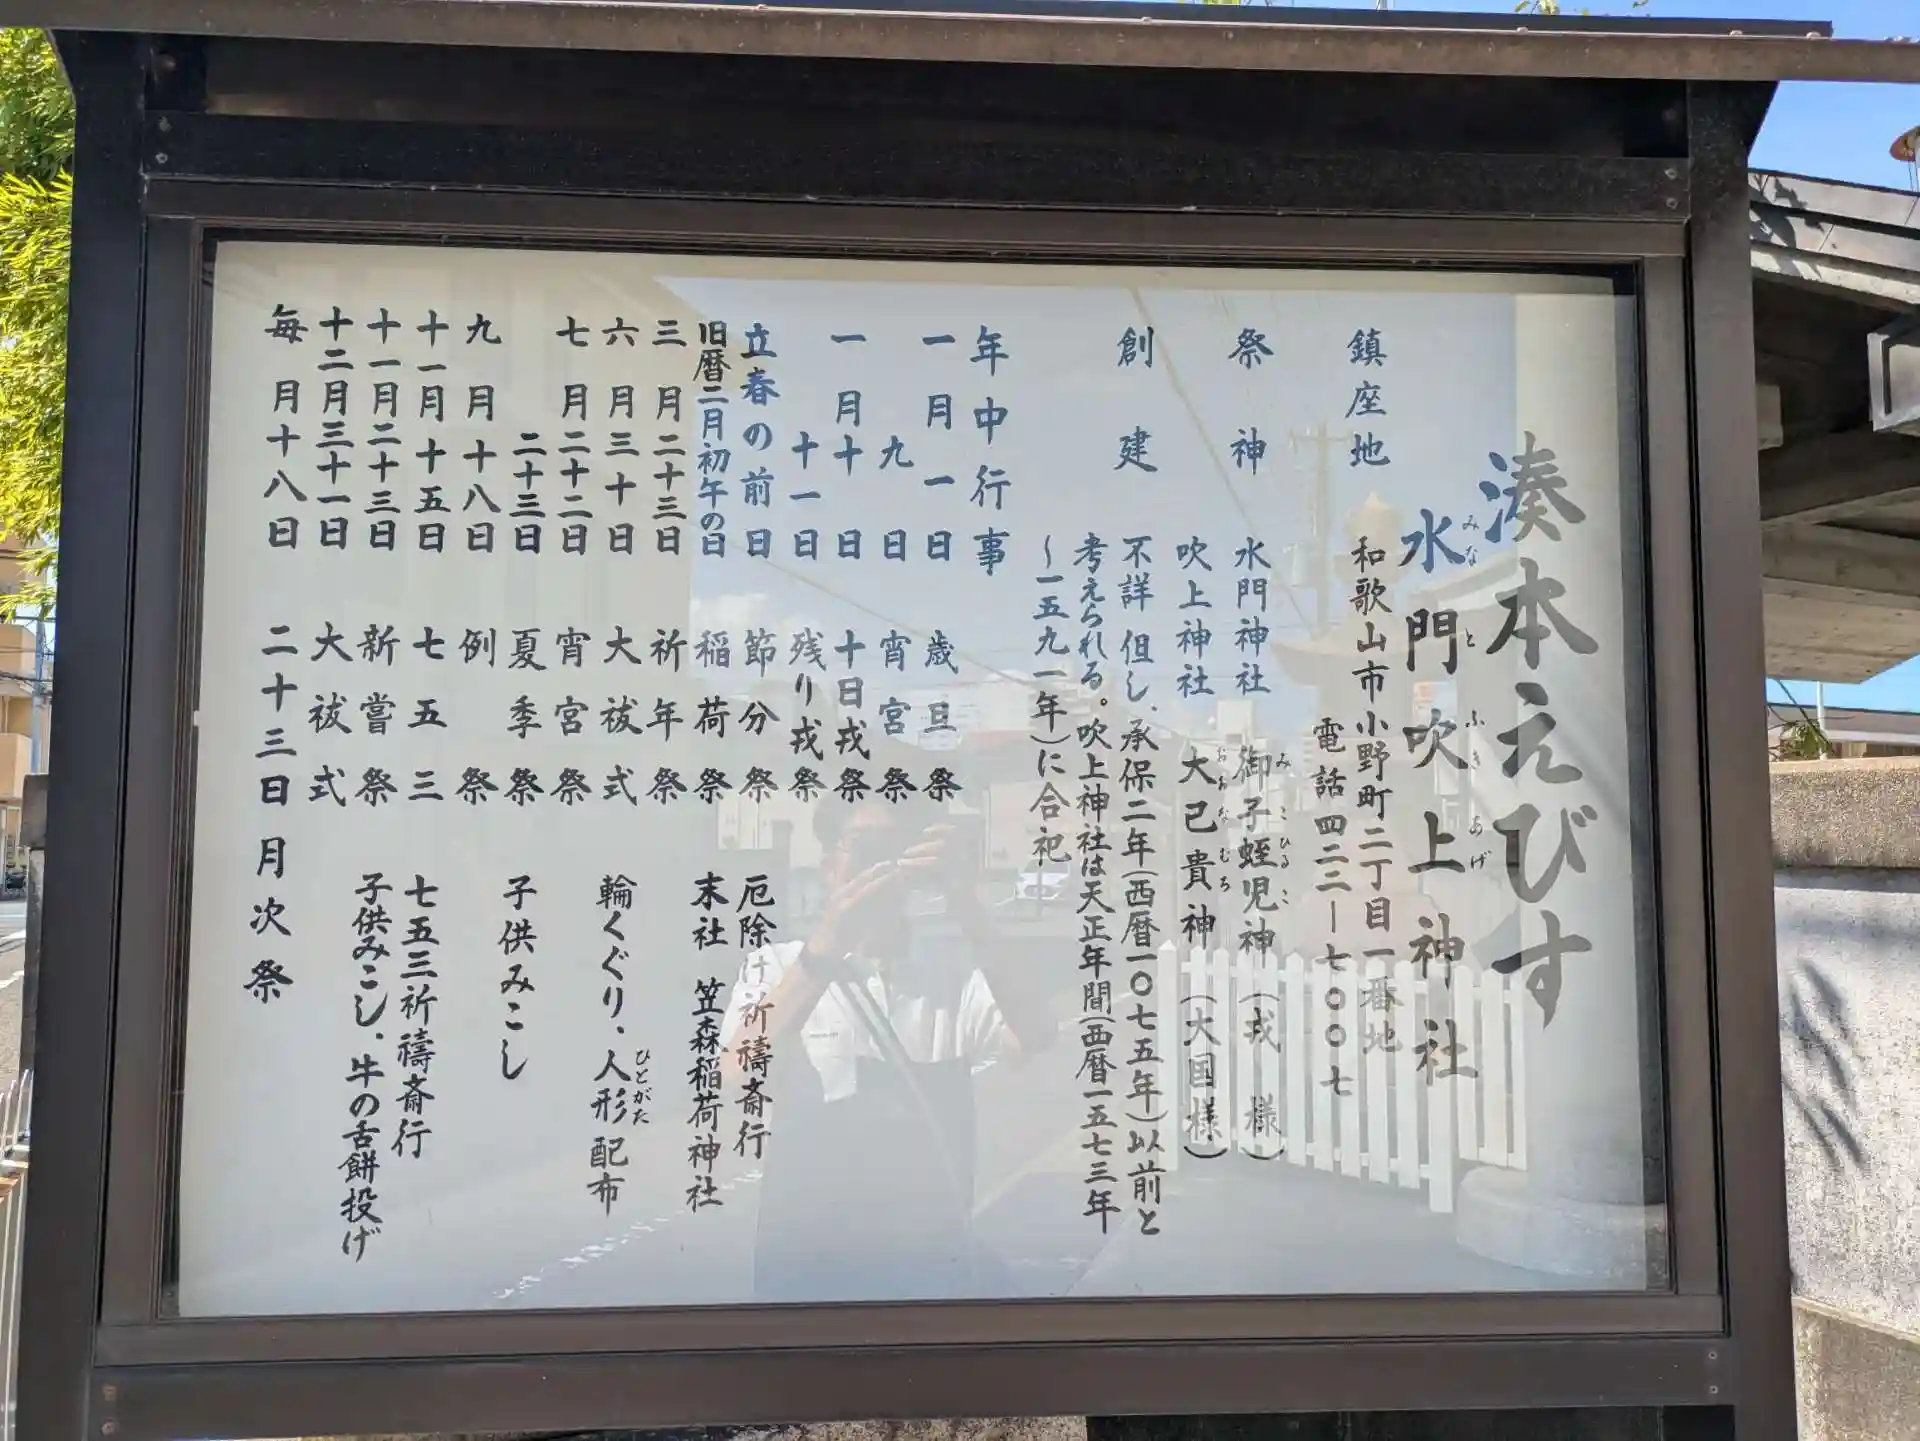 湊本えびす
水門吹上神社
みなと ふきあげ
鎮座地 和歌山市小野町二丁目一番地
電話四二二ー七〇〇七
祭神 水門神社 御子蛭児神(戎様)
みこひるこ
吹上神社 大己貴神(大国様)
おおなむち
創建 不詳但し、承保二年(西暦一〇七五年)以前と
考えられる。吹上神社は天正年間(西暦一五七三年
〜一五九一年)に合祀
年中行事
一月一日 歳旦祭
九日 宵宮祭
一月十日 十日戎祭
十一日 残り戎祭
立春の前日 節分祭 厄除け祈禱斎行
旧暦二月初午の日 稲荷祭 末社 笠森稲荷神社
三月二十三日 祈年祭
六月三十日 大祓式 輪くぐり、人形配布
ひとがた
七月二十二日 宵宮祭
二十三日 夏季祭 子供みこし
九月十八日 例祭
十一月十五日 七五三 七五三祈禱斎行
十一月二十三日 新嘗祭 子供みこし、牛の舌餅投げ
十二月三十一日 大祓式
毎月十八日 二十三日 月次祭